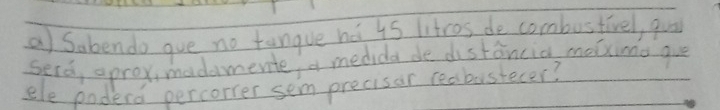 a) Sabendo que no tanque há 45 litros de combustível, qual
será, aproximadamente, a medida de distância máxima que
ele poderá percorrer sem precisar reabastecer?